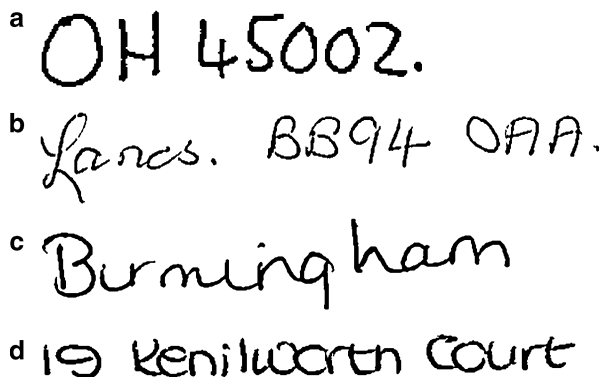 a OH 45002.
b Lancs. BB94 OAA.
c Burmingham
d 19 Kenilworth Court